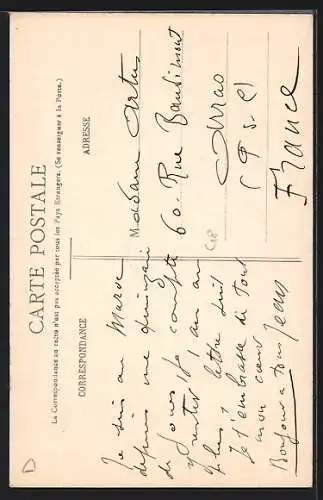 CARTE POSTALE
La Correspondance au recto n'est pas acceptée par tous les Pays Etrangers. (Se renseigner à la Poste.)
CORRESPONDANCE
ADRESSE
Je suis au Maroc
depuis une quinzaine
de jours je compte
rentrer d'1 an au
plus, lettre suit
Je t'embrasse de tout
mon cœur
Bonjour à tous Jean
Madame Artus
60 Rue Baudimont
Arras
(P. d. C)
France
C18
D